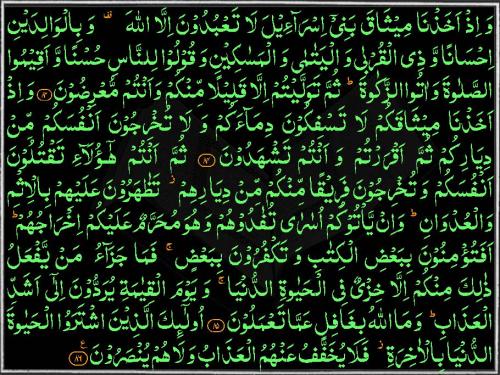 وَ اِذْ اَخَذْنَا مِیْثَاقَ بَنِیْۤ اِسْرَآءِیْلَ لَا تَعْبُدُوْنَ اِلَّا اللّٰهَ قف وَ بِالْوَالِدَیْنِ
اِحْسَانًا وَّ ذِی الْقُرْبٰى وَ الْیَتٰمٰى وَ الْمَسٰكِیْنِ وَ قُوْلُوْا لِلنَّاسِ حُسْنًا وَّ اَقِیْمُوا
الصَّلٰوةَ وَ اٰتُوا الزَّكٰوةَ ؕ ثُمَّ تَوَلَّیْتُمْ اِلَّا قَلِیْلًا مِّنْكُمْ وَ اَنْتُمْ مُّعْرِضُوْنَ ۸۳ وَ اِذْ
اَخَذْنَا مِیْثَاقَكُمْ لَا تَسْفِكُوْنَ دِمَآءَكُمْ وَ لَا تُخْرِجُوْنَ اَنْفُسَكُمْ مِّنْ
دِیَارِكُمْ ثُمَّ اَقْرَرْتُمْ وَ اَنْتُمْ تَشْهَدُوْنَ ۸۴ ثُمَّ اَنْتُمْ هٰۤؤُلَآءِ تَقْتُلُوْنَ
اَنْفُسَكُمْ وَ تُخْرِجُوْنَ فَرِیْقًا مِّنْكُمْ مِّنْ دِیَارِهِمْ ؗ تَظٰهَرُوْنَ عَلَیْهِمْ بِالْاِثْمِ
وَ الْعُدْوَانِ ؕ وَ اِنْ یَّاْتُوْكُمْ اُسٰرٰى تُفٰدُوْهُمْ وَ هُوَ مُحَرَّمٌ عَلَیْكُمْ اِخْرَاجُهُمْ ؕ
اَفَتُؤْمِنُوْنَ بِبَعْضِ الْكِتٰبِ وَ تَكْفُرُوْنَ بِبَعْضٍ ۚ فَمَا جَزَآءُ مَنْ یَّفْعَلُ
ذٰلِكَ مِنْكُمْ اِلَّا خِزْیٌ فِی الْحَیٰوةِ الدُّنْیَا ۚ وَ یَوْمَ الْقِیٰمَةِ یُرَدُّوْنَ اِلٰۤى اَشَدِّ
الْعَذَابِ ؕ وَ مَا اللّٰهُ بِغَافِلٍ عَمَّا تَعْمَلُوْنَ ۸۵ اُولٰٓىِٕكَ الَّذِیْنَ اشْتَرَوُا الْحَیٰوةَ
الدُّنْیَا بِالْاٰخِرَةِ ؗ فَلَا یُخَفَّفُ عَنْهُمُ الْعَذَابُ وَ لَا هُمْ یُنْصَرُوْنَ ۸۶ ع